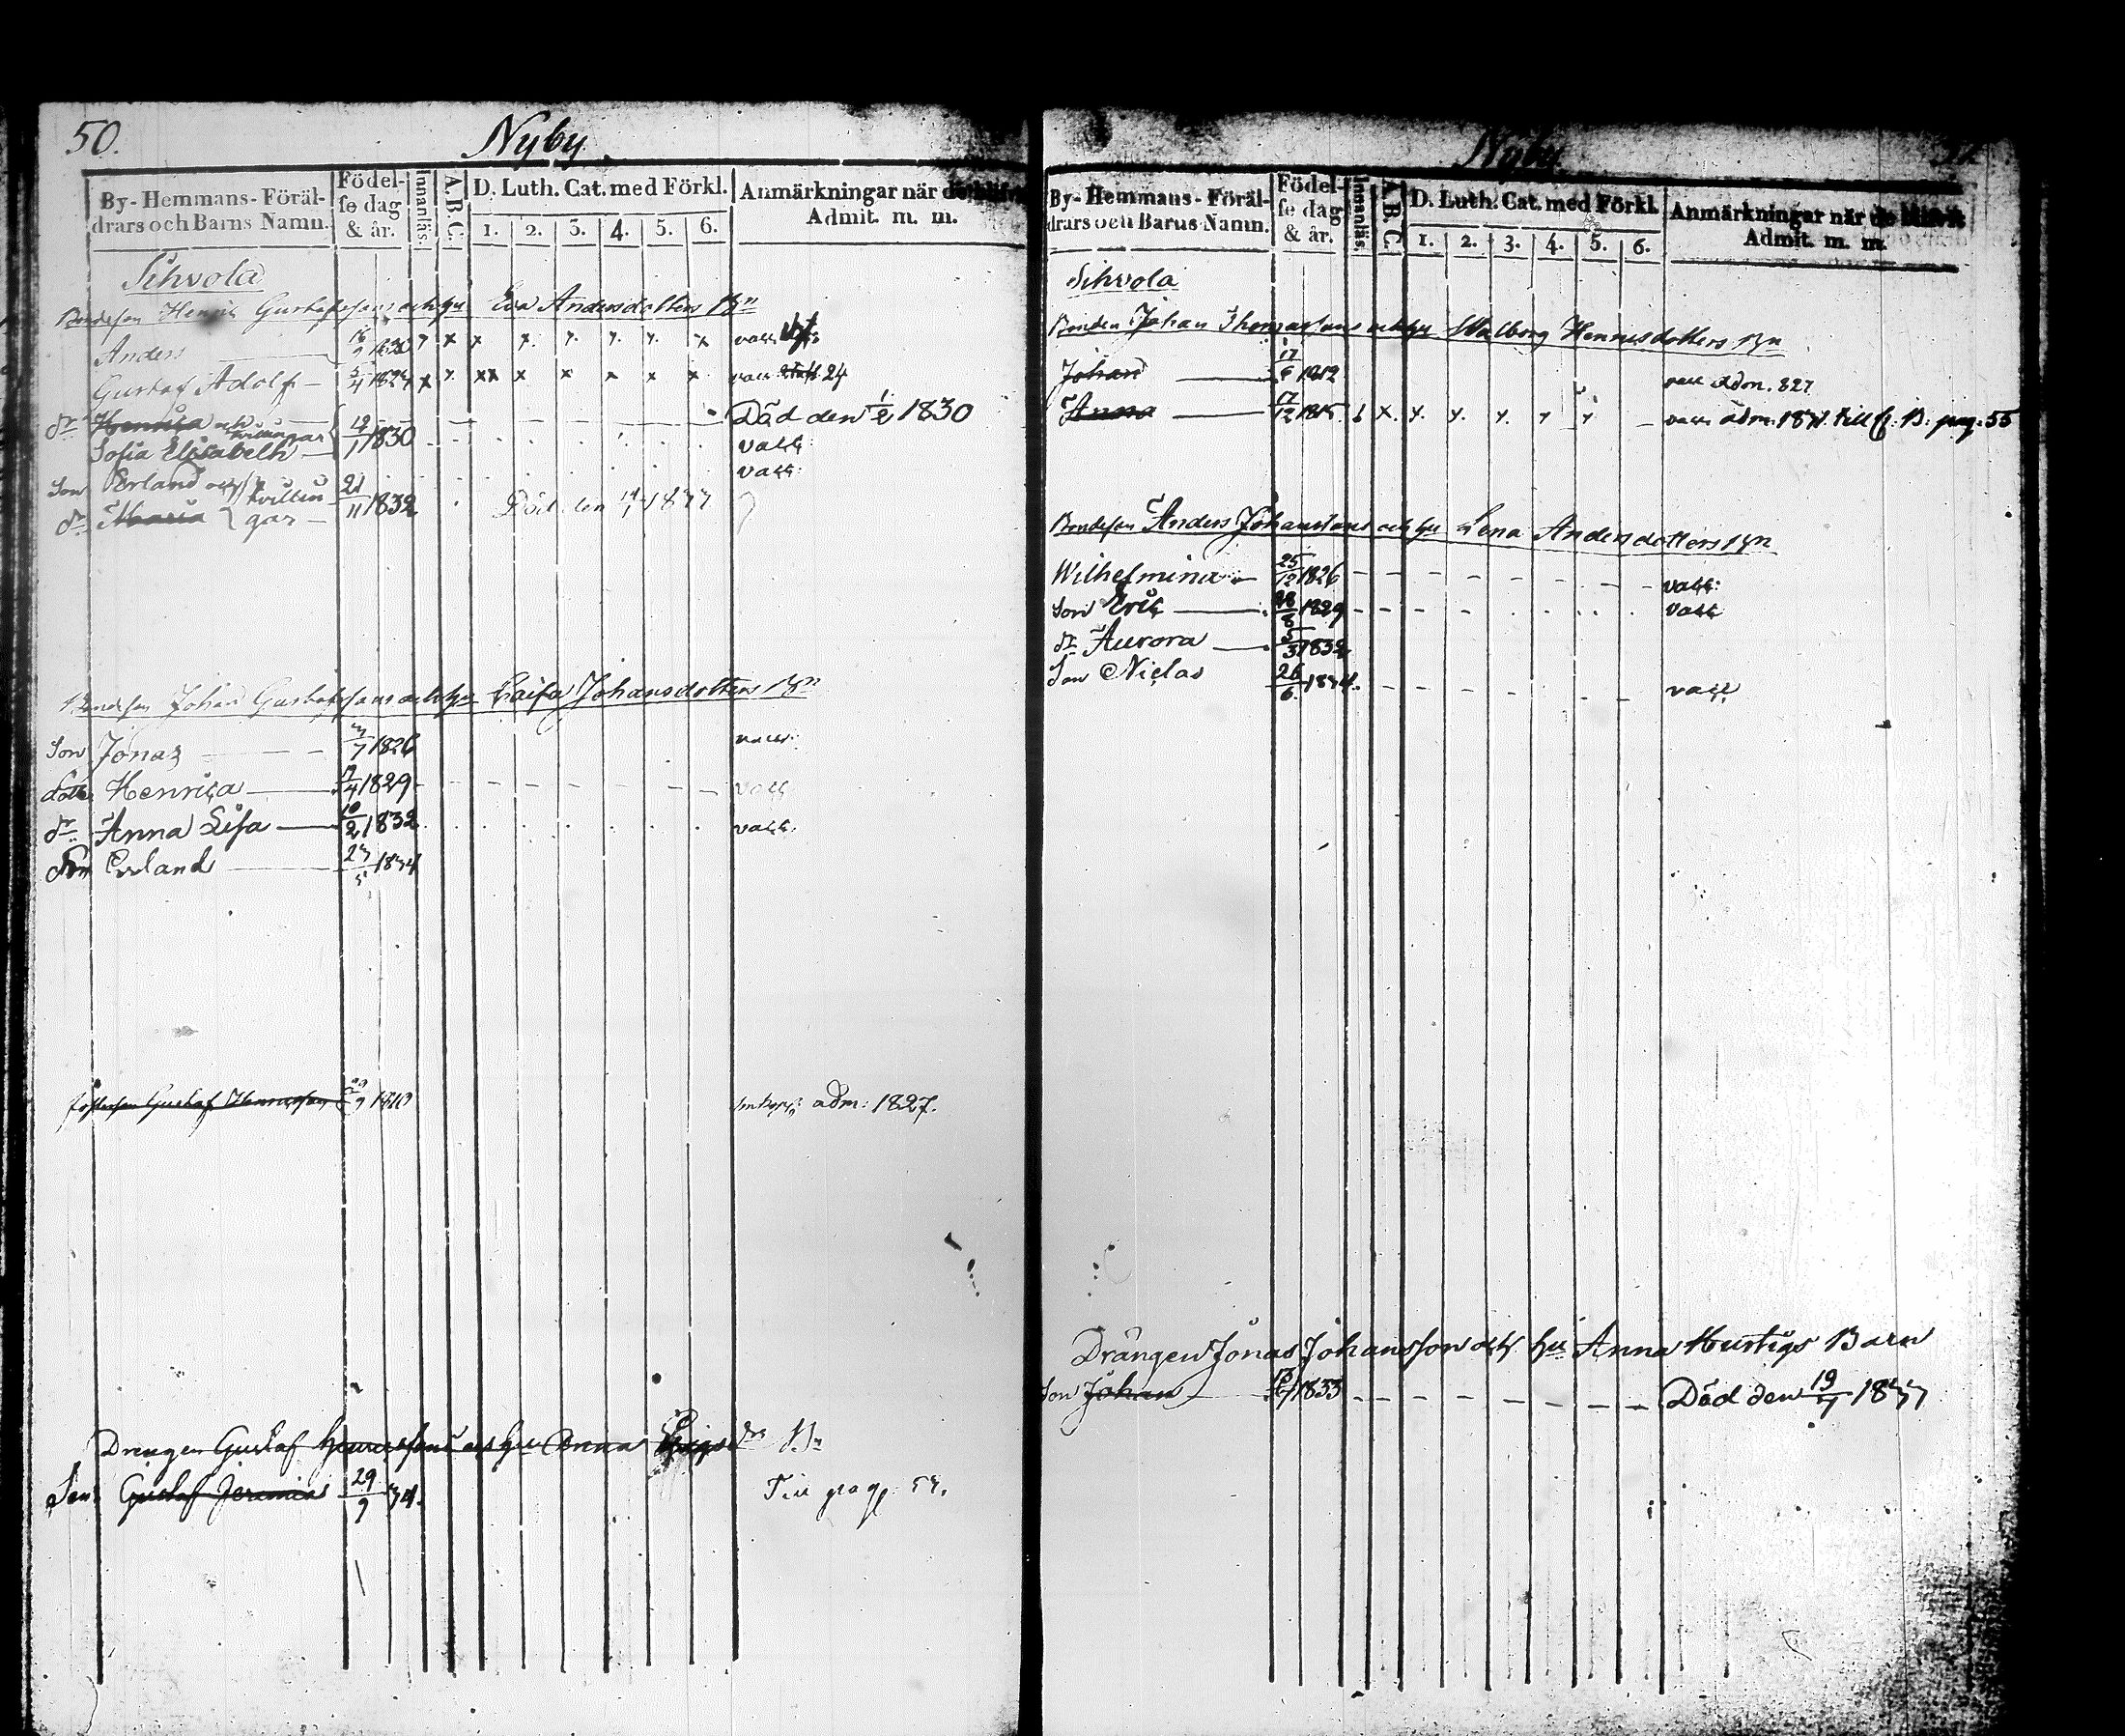 50.
Nyby
By-Hemmans-Föräl-
drars och Barns Namn.
Födel-
se dag
& år.
Innanläs.
A.B.C.
D. Luth. Cat. med Förkl.
1. 2. 3. 4. 5. 6.
Anmärkningar när de
Admit. m. m.
Sihvola
Bondesen Henric Gustafssons och hu Eva Andersdotters Bn
Anders 16/9 1820 vacc
Gustaf Adolf 5/4 1824 vacc 24
dr Henrica och Död den 1/2 1830
Sofia Elisabeth tvillingar 12/1 1830 vacc
Son Erland och tvillin vacc
dr Maria gar 21/11 1832 Död den 1833
Bondesen Johan Gustafssons och hu Caisa Johansdotters Bn
Son Jonas 3/7 1826 vacc
dotter Henrica 1829 vacc
dr Anna Lisa 10/2 1832 vacc.
Son Erland 23/5 1834
fostersen Gustaf Henricsson 1810 adm: 1827.
Drengen Gustaf Henricssons och hu Anna dr Bn
Son Gustaf Jeremias 29/9 34. Till pag. 53.
Nyby
By-Hemmans-Föräl-
drars och Barns Namn.
Födel-
se dag
& år.
Innanläs.
A.B.C.
D. Luth. Cat. med Förkl.
1. 2. 3. 4. 5. 6.
Anmärkningar när de blifvit
Admit. m. m.
Sihvola
Bonden Johan Thomassons och hu Walborg Henricsdotters Bn
Johan 17/6 1812 vacc Adm. 827
Anna 17/12 1815 vacc adm. 1831. till C. B. pag. 55
Bondesen Anders Johanssons och hu Lena Andersdotters Bn
Wilhelmina 25/12 1826 vacc:
Son Eric 28/8 1829 vacc
dr Aurora 5/3 1832
Son Niclas 26/6 1834. vacc
Drängen Jonas Johansson och hu Anna Hurtigs Barn
Son Johan 1833 Död den 19/7 1833